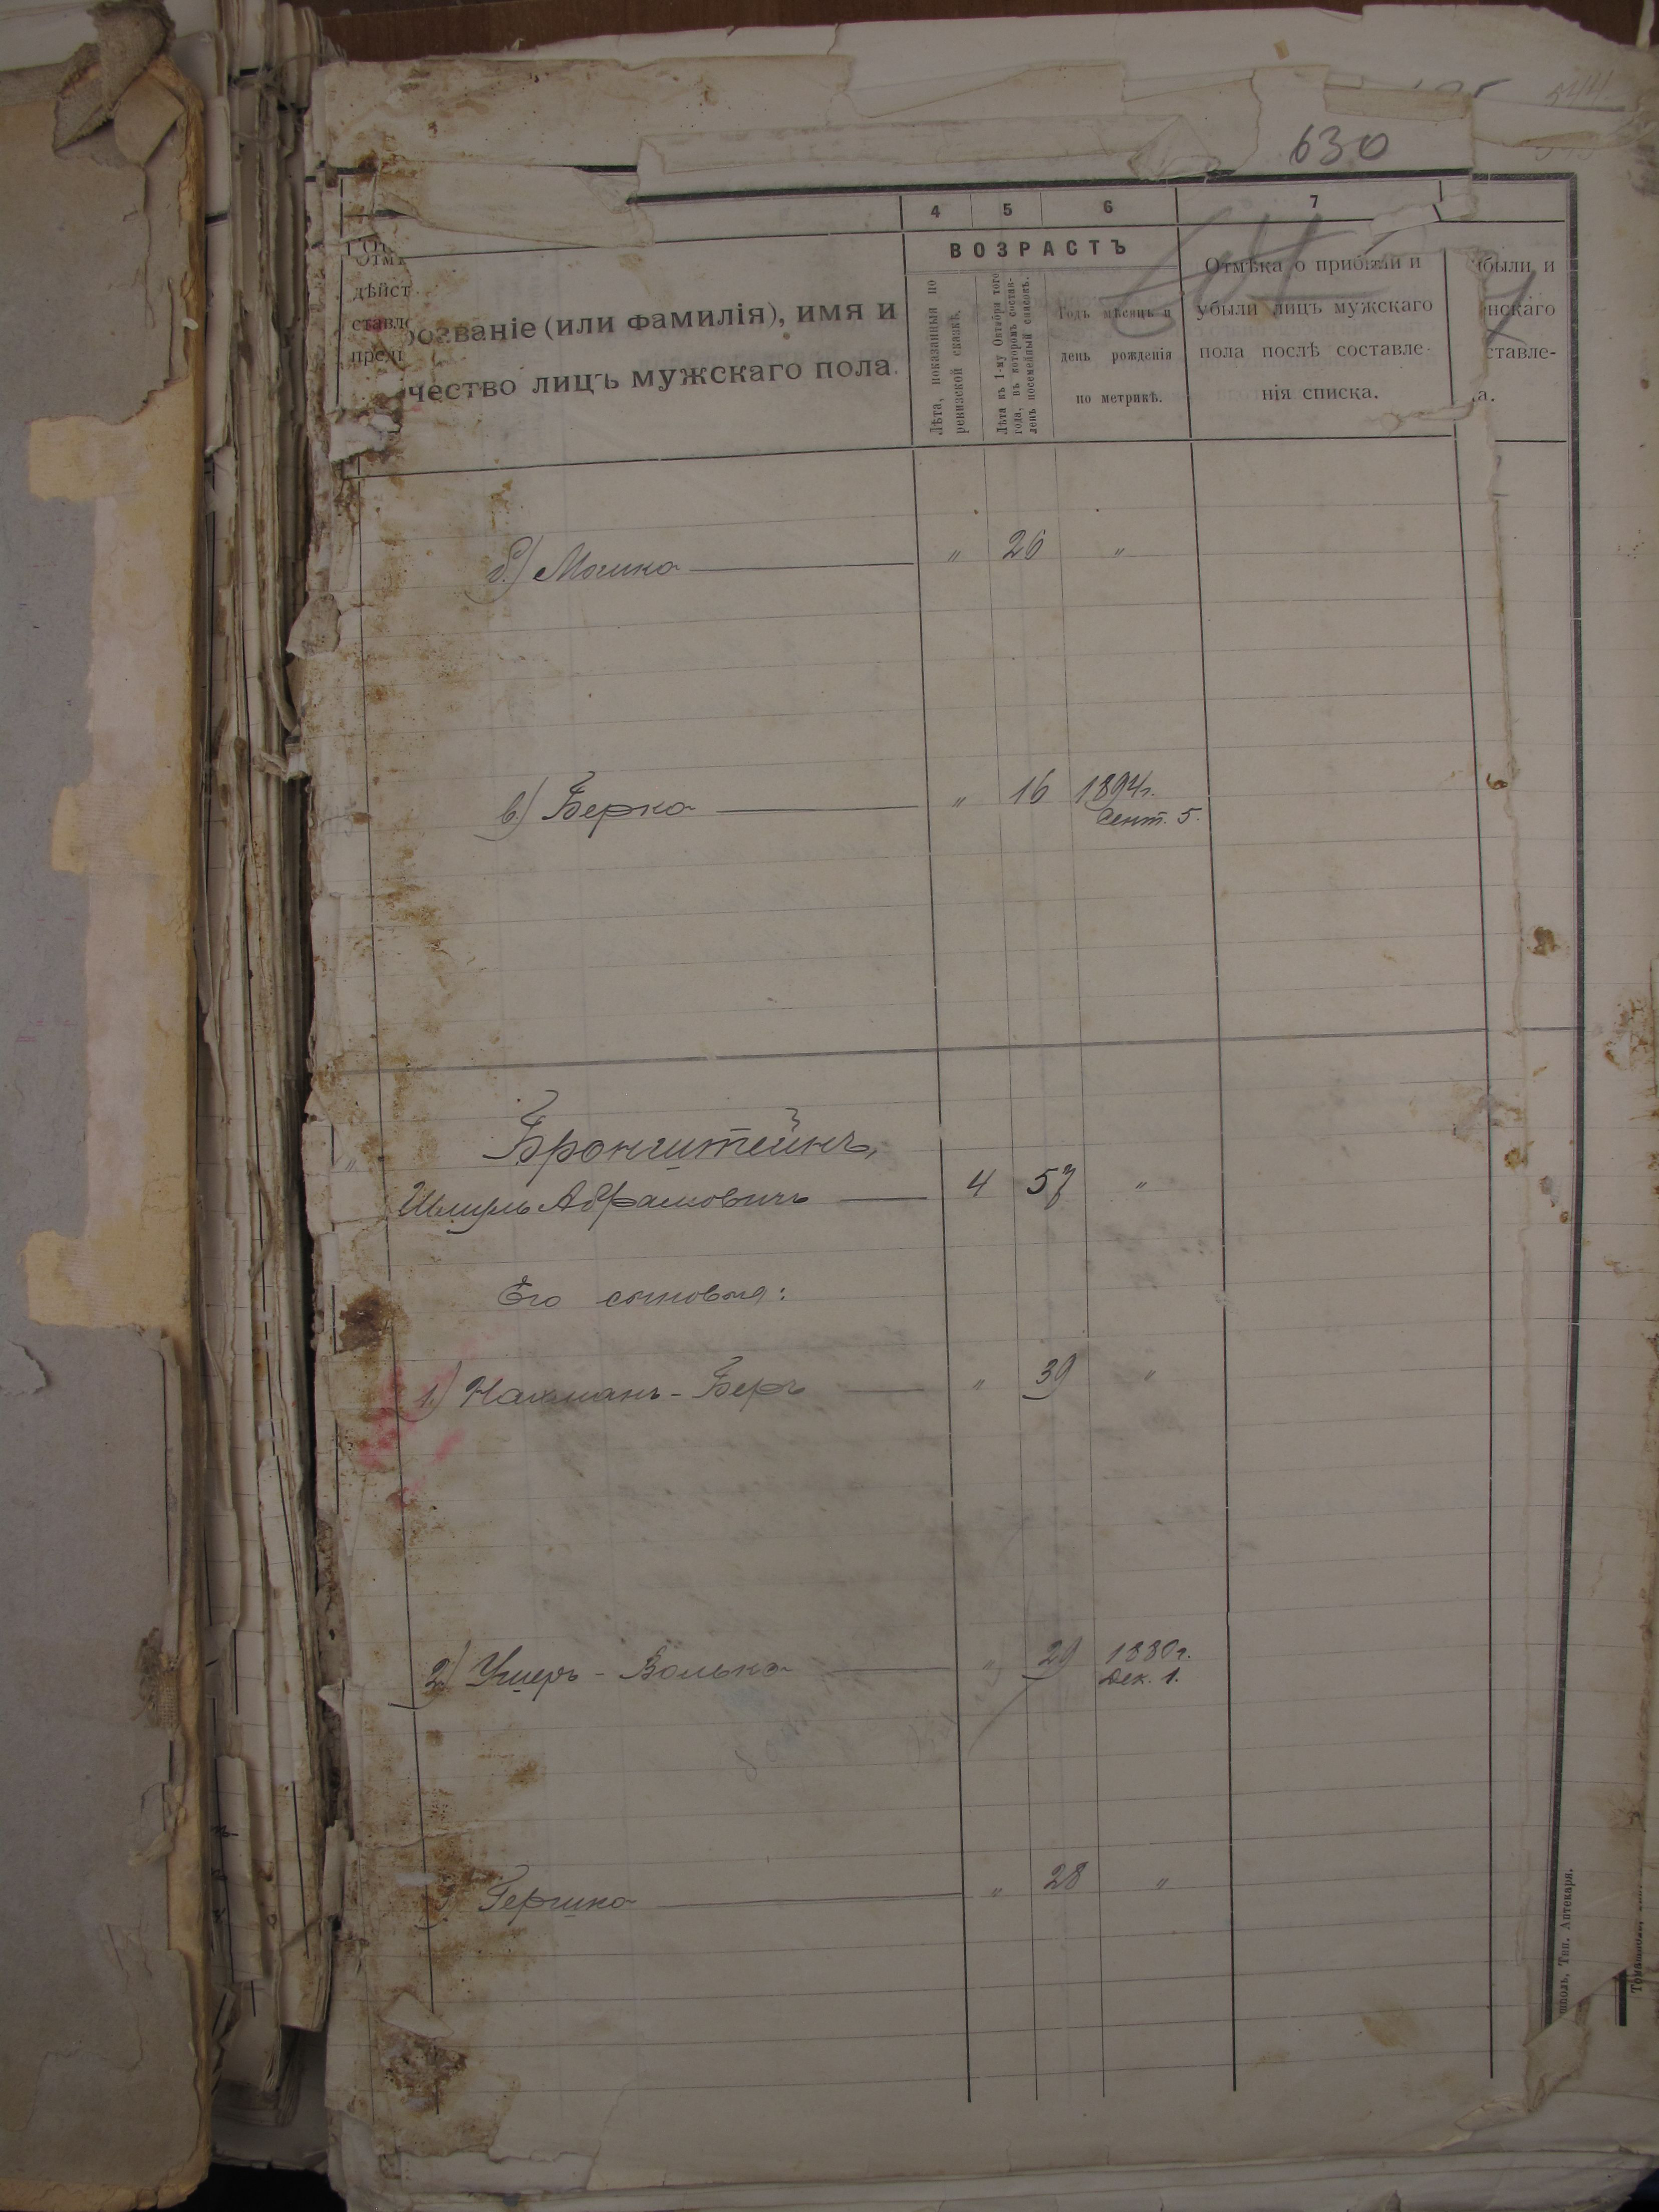 630
4 5 6 7
ВОЗРАСТЪ
розваніе (или фамилія), имя и
чество лицъ мужскаго пола.
Лѣта, показанныя по
ревизской сказкѣ.
Лѣта къ 1-му Октября того
года, въ которомъ состав-
ленъ посемейный списокъ.
Годъ мѣсяцъ и
день рожденія
по метрикѣ.
Отмѣка о прибыли и
убыли лицъ мужскаго
пола послѣ составле-
нія списка.
были и
нскаго
ставле-
а.
дѣйст
ставл
пред
б.) Мошко " 26 "
в.) Берко " 16 1894 г.
Сент. 5.
Бронштейнъ,
Шмуль Абрамовичъ 4 57 "
Его сыновья:
1.) Нахманъ-Беръ " 39 "
2.) Ушеръ-Волько " 29 1880 г.
Дек. 1.
Гершко " 28 "
шполь, Тип. Аптекаря.